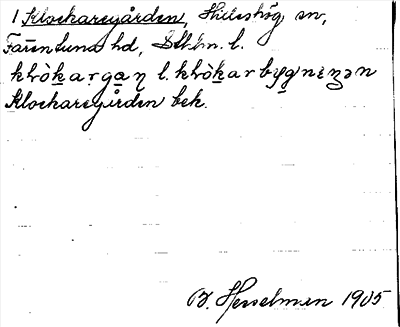 1 Klockaregården, Hilleshög sn,
Färentuna hd, Sthlm. l.
klòkargan l. klòkarbygnɩŋən
Klockaregården bek.
B. Hesselman 1905